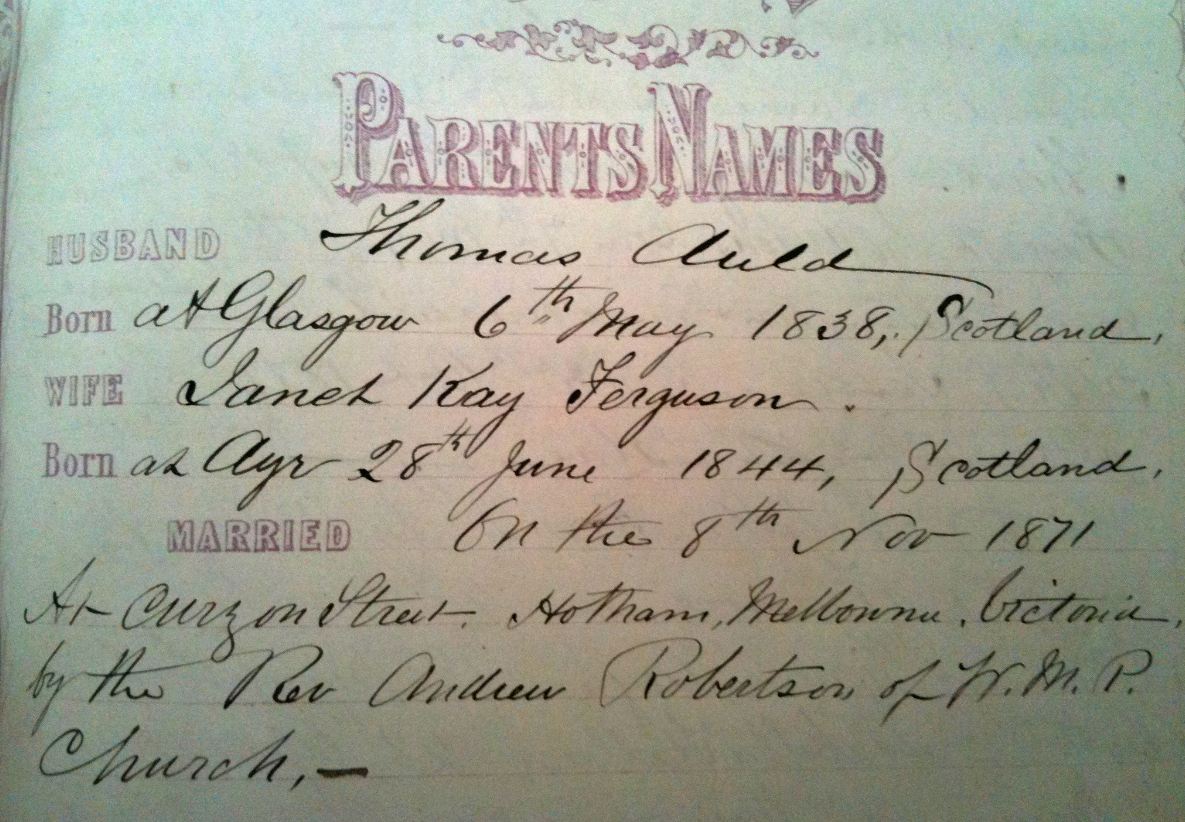 PARENTS NAMES
HUSBAND Thomas Auld
Born at Glasgow 6th May 1838, Scotland,
WIFE Janet Kay Ferguson.
Born at Ayr 28th June 1844, Scotland,
MARRIED On the 8th Nov 1871
At Curzon Street. Hotham, Melbourne, Victoria,
by the Rev Andrew Robertson of W. M. P.
Church, —